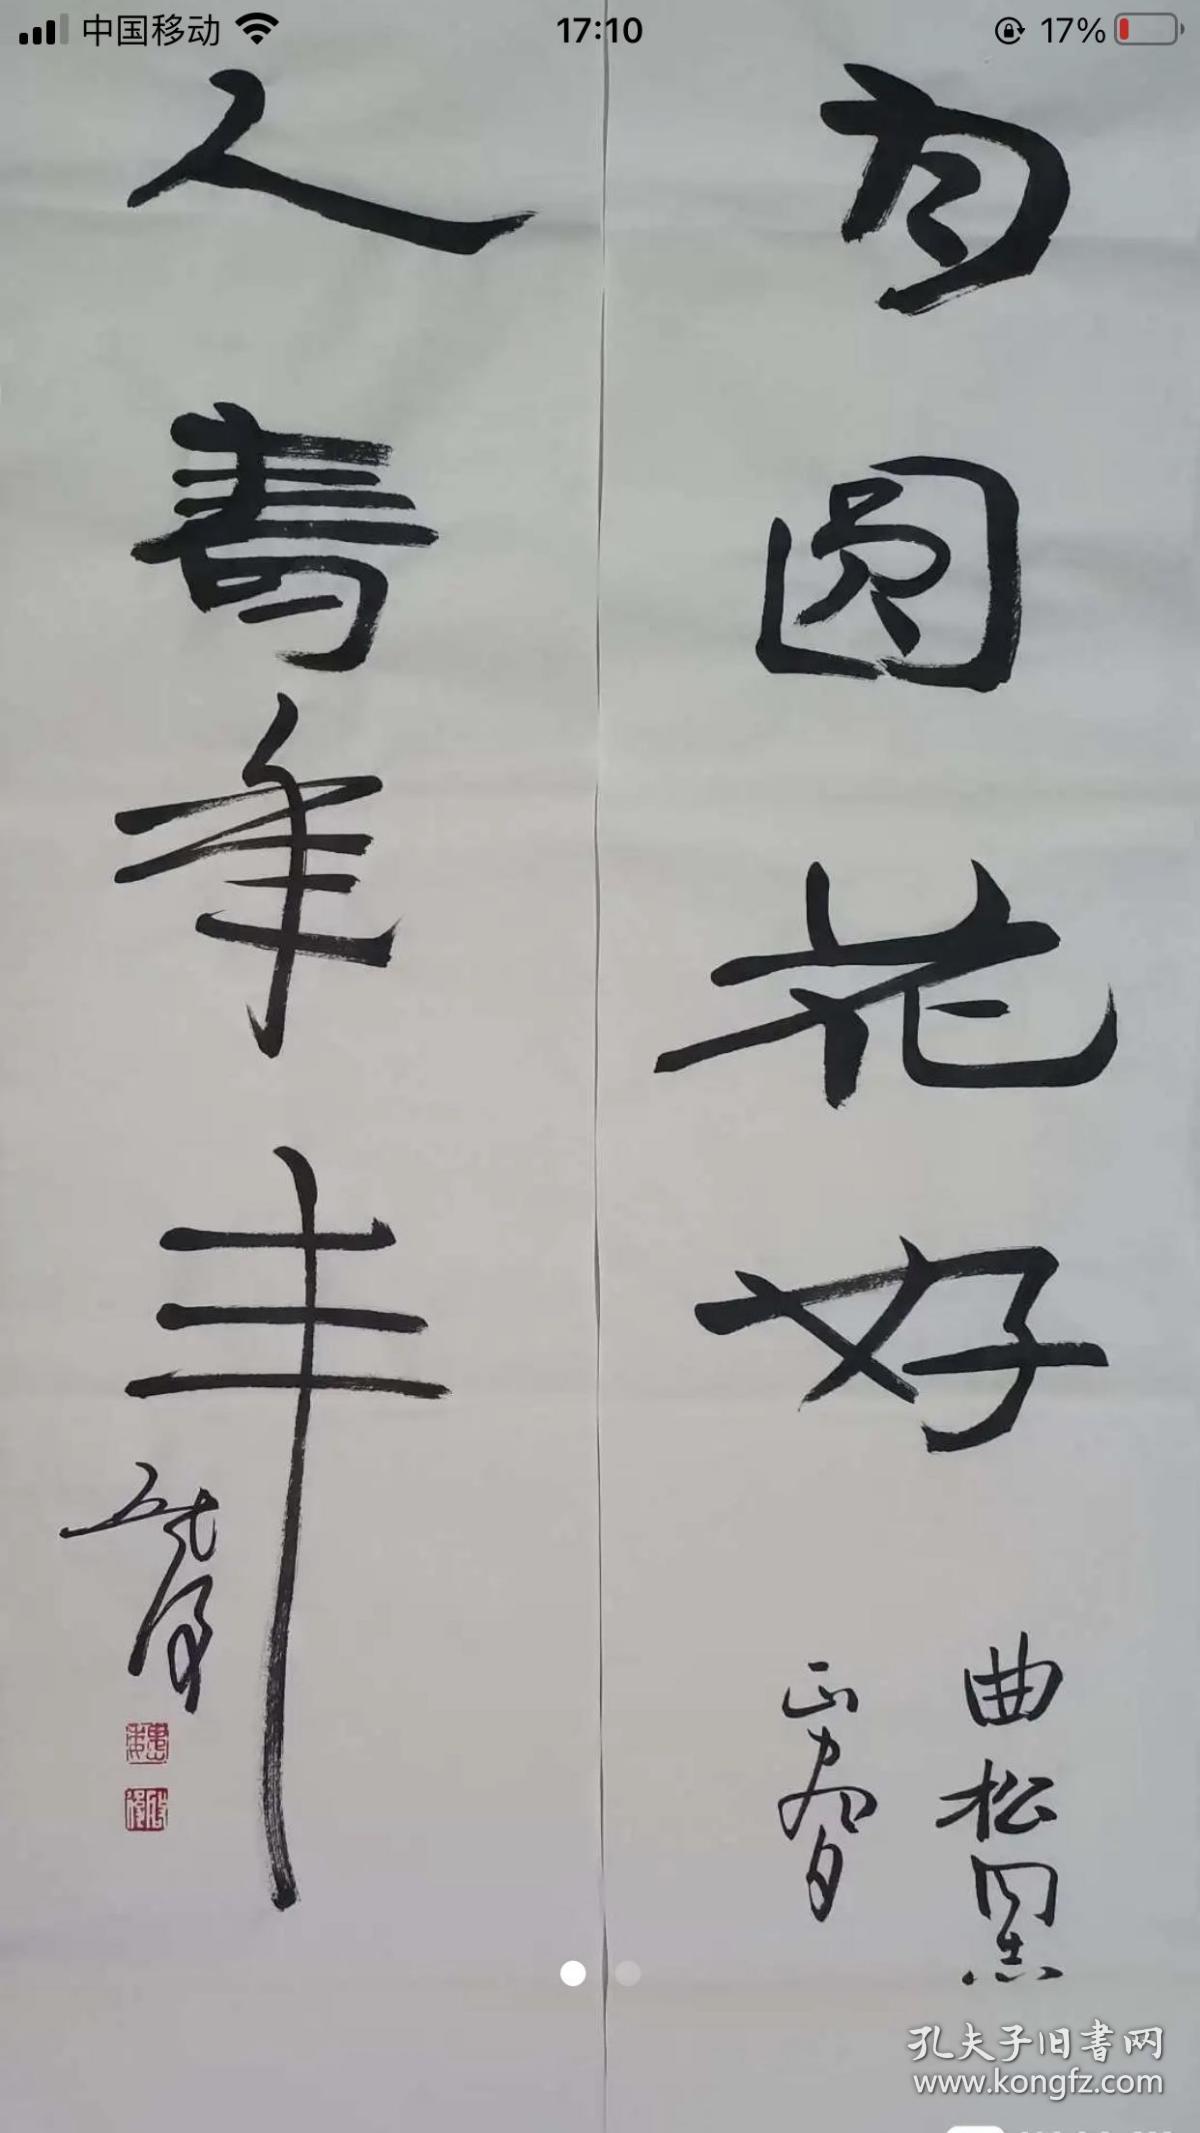 中国移动 17:10 17%
月圆花好
曲松同志
正腕
人寿年丰
孔夫子旧书网
www.kongfz.com